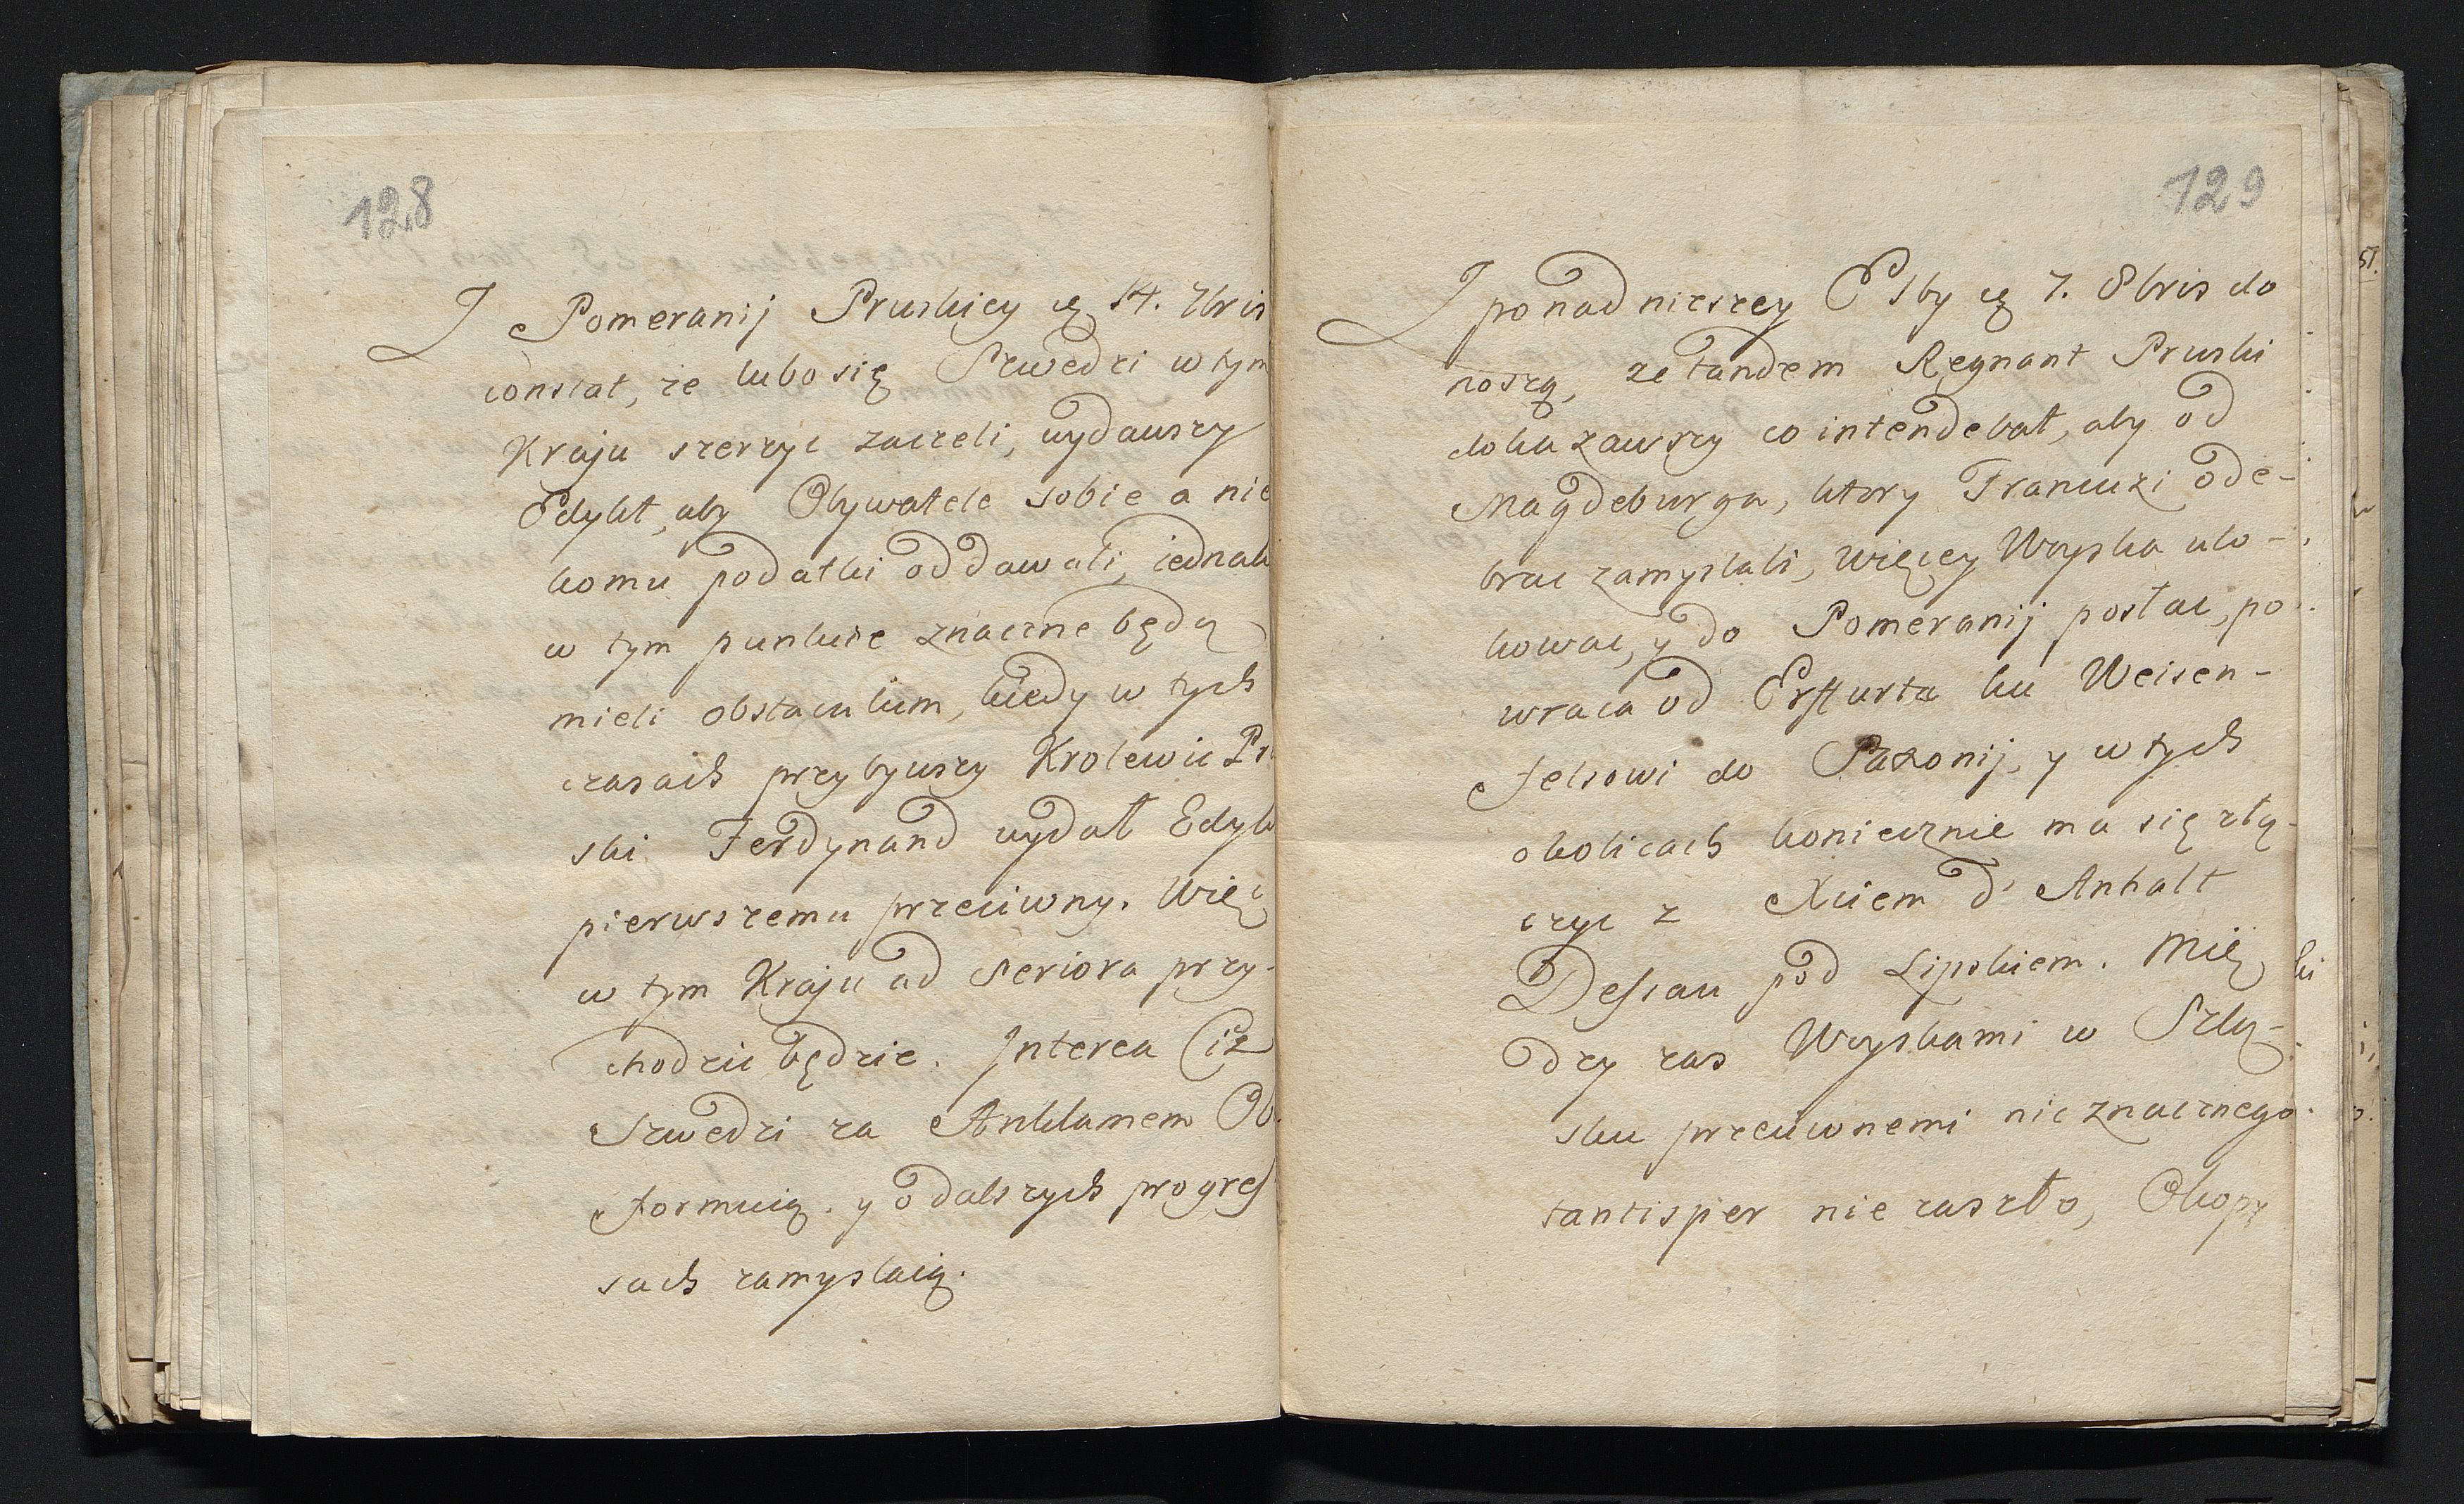 128
Z Pomeranij Pruskiey z 14. 7bris
constat, ze lubo się Szwedzi w tym
Kraju szerzyc zaczeli, wydawszy
Edykt, aby Obywatele sobie a nie
komu podatki oddawali, iednak
w tym punkcie znaczne będą
mieli obstaculum, kiedy w tych
czasach przybywszy Krolewic Pr
ski Ferdynand wydał Edyk
pierwszemu przeciwny. Więc
w tym Kraju ad seriora przy-
chodzic będzie. Interea Ciz
Szwedzi za Anklamem Ob.
formuią. y o dalszych progres
sach zamyslaią.
129
Z ponad nizszey Elby z 7. 8bris do
noszą, ze tandem Regnant Pruski
dokazawszy co intendebat, aby od
Magdeburga, ktory Francuzi ode-
brac zamyslali, więcey Woyska ulo-
kowac, y do Pomeranij posłac, po
wraca od Erffurta ku Weisen-
felsowi do Saxonij, y w tych
okolicach koniecznie ma się złą-
czyc z Xciem d' Anhalt
Dessau pod Lipskiem. Mię
dzy zas Woyskami w Szlą-
sku przeciwnemi nic znacznego
tantisper nie zaszło, Okopy
ki
51.